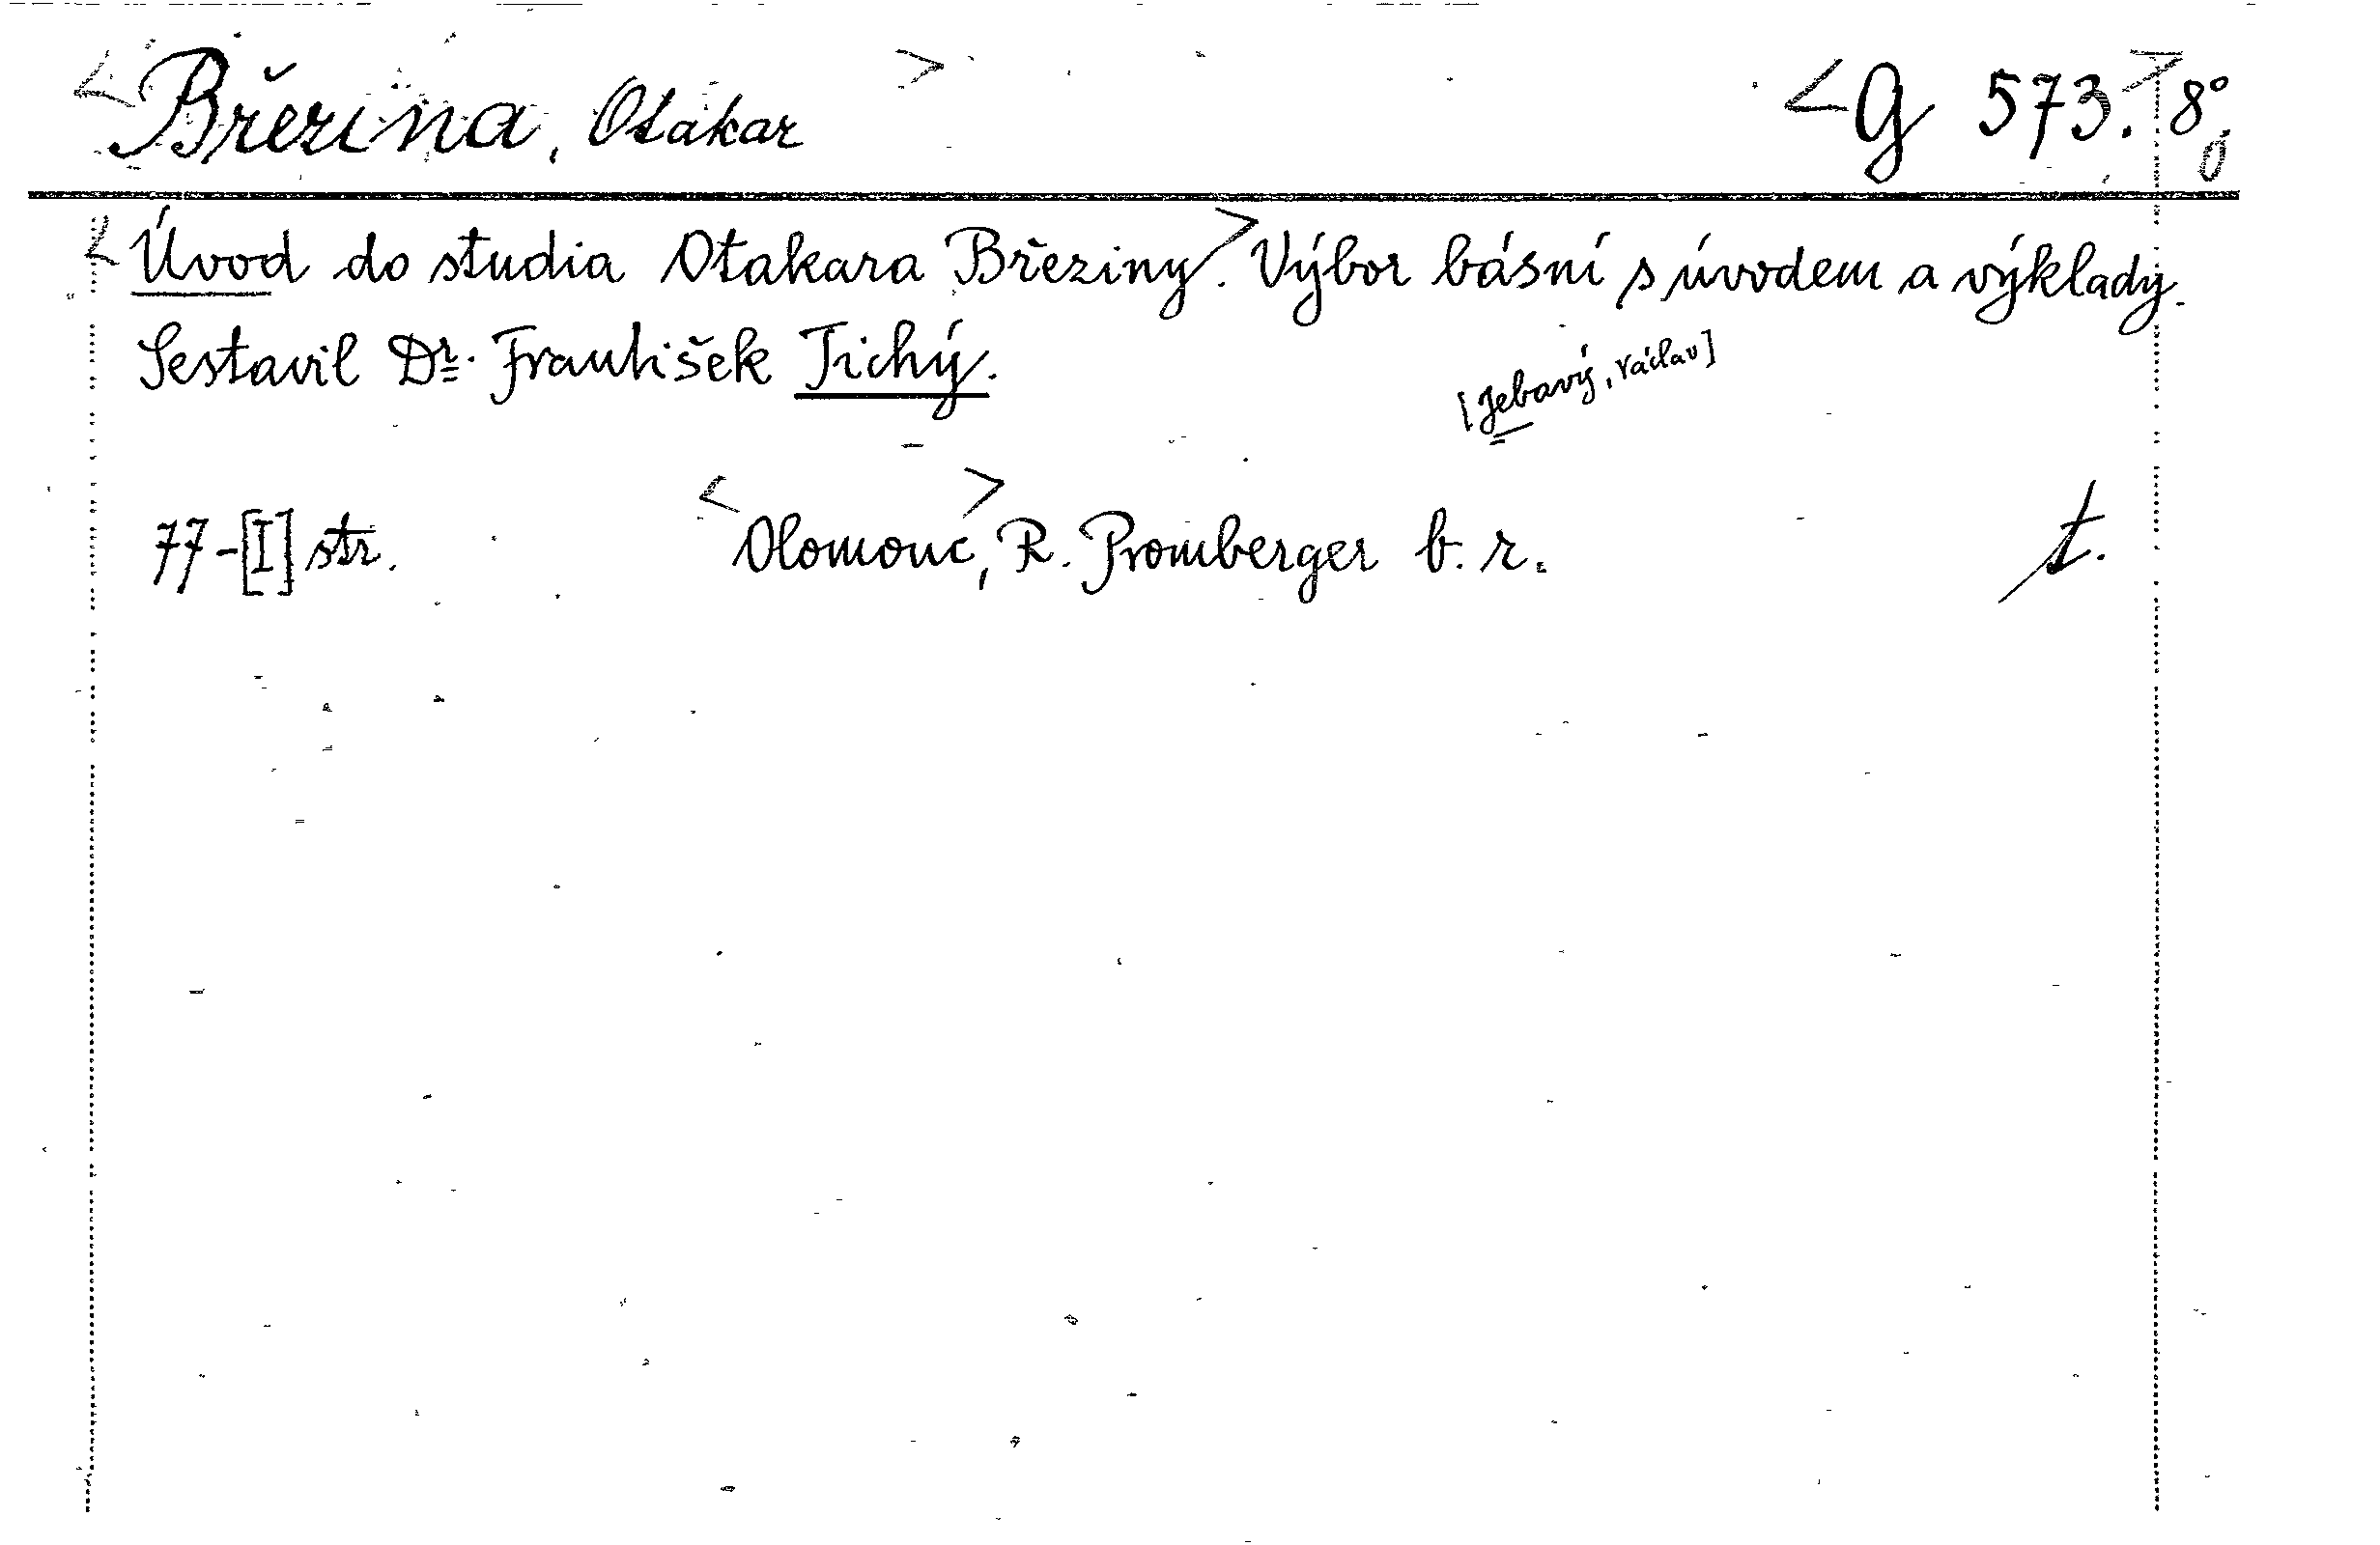 <Březina, Otakar> <G 573.> 8°
<Úvod do studia Otakara Březiny>. Výbor básní s úvodem a výklady.
Sestavil Dr. František Tichý.
[Jebavý, Václav]
77-[I] str. <Olomouc>, R. Promberger b. r. t.